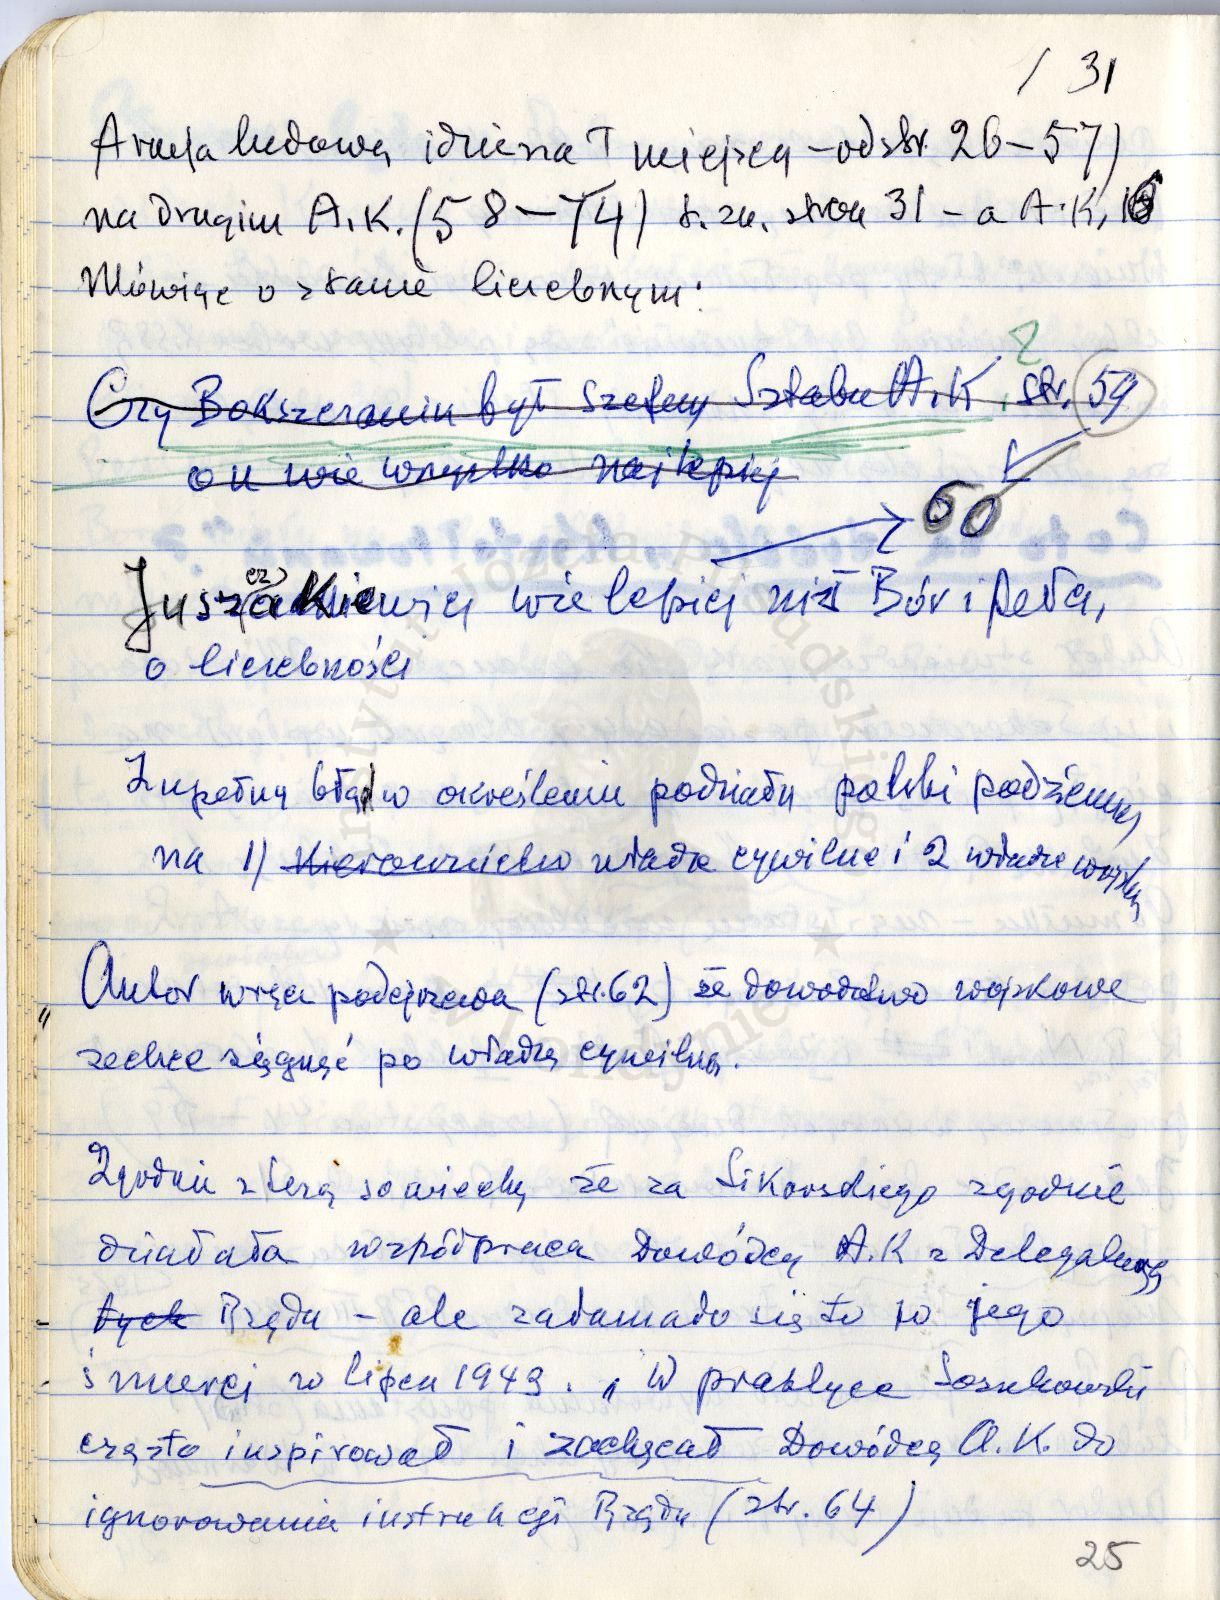 / 31
Armja ludowa idzie na I miejscu – od str. 26 – 57)
na drugim A.K. (58 – 74) t.zn. stron 31 – a A.K. 16
Mówiąc o stanie liczebnym:
2
Czy Bokszczanin był szefem Sztabu A.K. str. 59
on wie wszystko najlepiej
60
cz)
Juszakiewicz wie lepiej niż Bór i Pełta,
o liczebności
Zupełny błąd w określeniu podziału polski podziemnej
na 1) Kierownictwo władze cywilne i 2 władze wojsk
Autor wręcz podejrzewa (str. 62) że dowództwo wojskowe
zechce sięgnąć po władzę cywilną.
Zgodnie z tezą sowiecką że za Sikorskiego zgodnie
działała współpraca Dowódcy A.K z Delegaturą
tych Rządu – ale załamało się to po jego
śmierci w lipcu 1943. „W praktyce Sosnkowski
często inspirował i zachęcał Dowódcę A.K. do
ignorowania instrukcji Rządu (str. 64)
25
Instytut Józefa Piłsudskiego
w Londynie